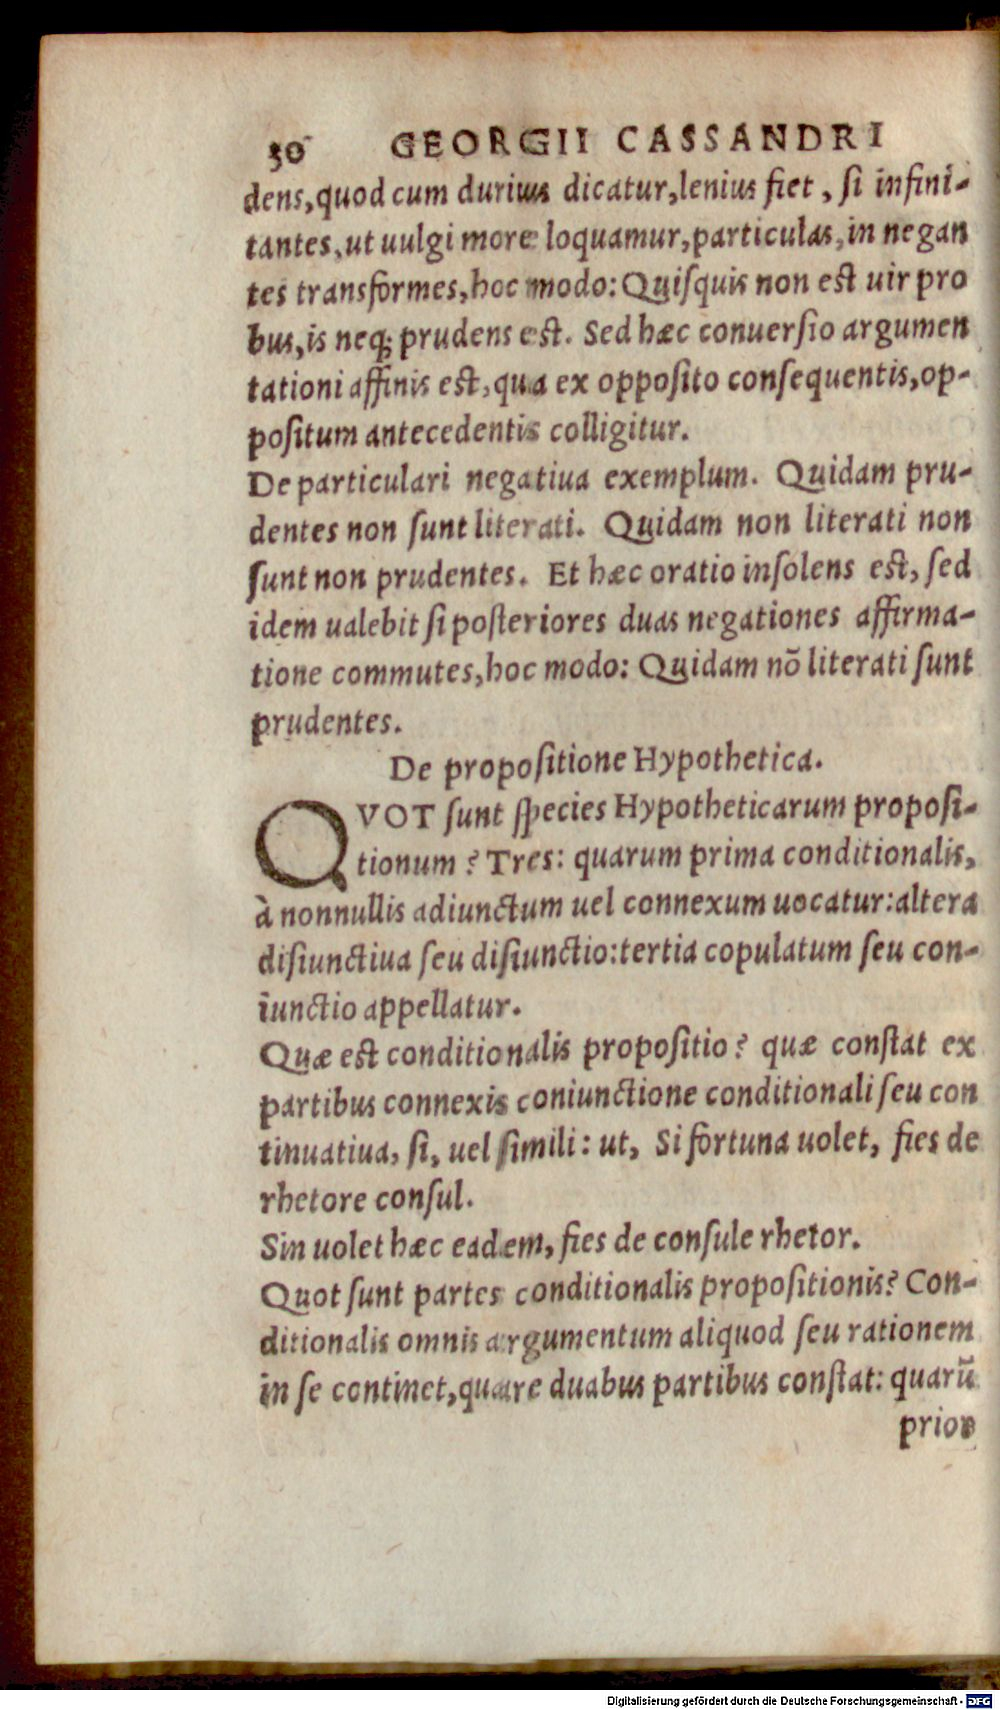 30 GEORGII CASSANDRI
dens, quod cum durius dicatur, lenius fiet, si infini-
tantes, ut uulgi more loquamur, particulas, in negan
tes transformes, hoc modo: Quiſquis non est uir pro
bus, is neq; prudens est. Sed hæc conuerſio argumen
tationi affinis est, qua ex oppoſito conſequentis, op-
poſitum antecedentis colligitur.
De particulari negatiua exemplum. Quidam pru-
dentes non ſunt literati. Quidam non literati non
ſunt non prudentes. Et hæc oratio inſolens est, ſed
idem ualebit ſi poſteriores duas negationes affirma-
tione commutes, hoc modo: Quidam nō literati ſunt
prudentes.
De propoſitione Hypothetica.
QVOT ſunt ſpecies Hypotheticarum propoſi-
tionum? Tres: quarum prima conditionalis,
à nonnullis adiunctum uel connexum uocatur: altera
diſiunctiua ſeu diſiunctio: tertia copulatum ſeu con-
iunctio appellatur.
Quæ est conditionalis propoſitio? quæ conſtat ex
partibus connexis coniunctione conditionali ſeu con
tinuatiua, ſi, uel ſimili: ut, Si fortuna uolet, fies de
rhetore conſul.
Sin uolet hæc eadem, fies de conſule rhetor.
Quot ſunt partes conditionalis propoſitionis? Con-
ditionalis omnis argumentum aliquod ſeu rationem
in ſe continet, quare duabus partibus conſtat: quarū
prior
Digitalisierung gefördert durch die Deutsche Forschungsgemeinschaft - DFG